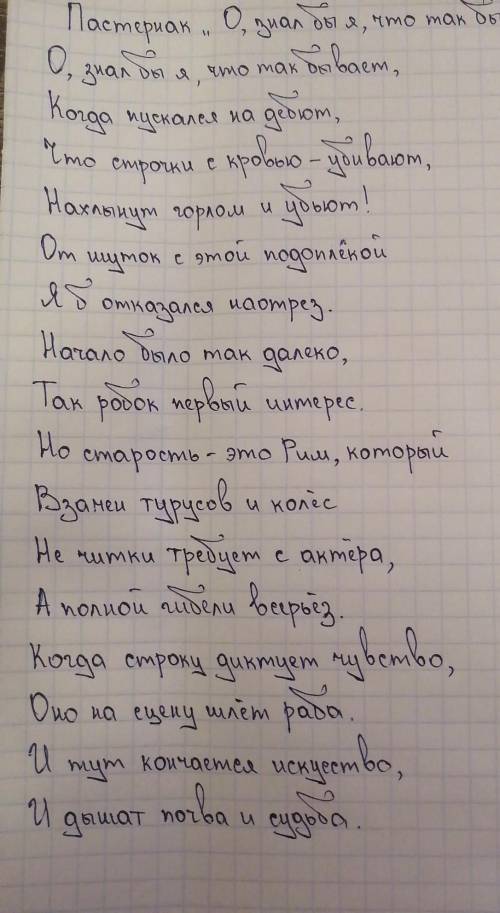 Пастернак „ О, знал бы я, что так бы
О, знал бы я, что так бывает,
Когда пускался на дебют,
Что строчки с кровью - убивают,
Нахлынут горлом и убьют!
От шуток с этой подоплёкой
Я б отказался наотрез.
Начало было так далеко,
Так робок первый интерес.
Но старость - это Рим, который
Взамен турусов и колёс
Не читки требует с актёра,
А полной гибели всерьёз.
Когда строку диктует чувство,
Оно на сцену шлёт раба.
И тут кончается искусство,
И дышат почва и судьба.